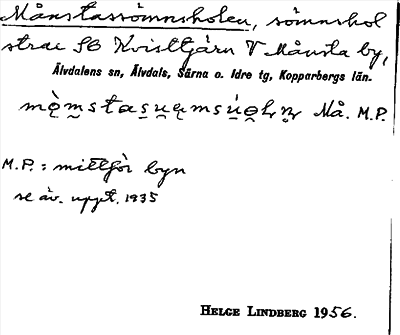 Månstassömnskolen, sömnskol
strax SO Kvisttjärn V Månsta by,
Älvdalens sn, Älvdals, Särna o. Idre tg, Kopparbergs län.
Må. M.P.
M.P.: mittför byn
se äv. uppt. 1935
HELGE LINDBERG 1956.